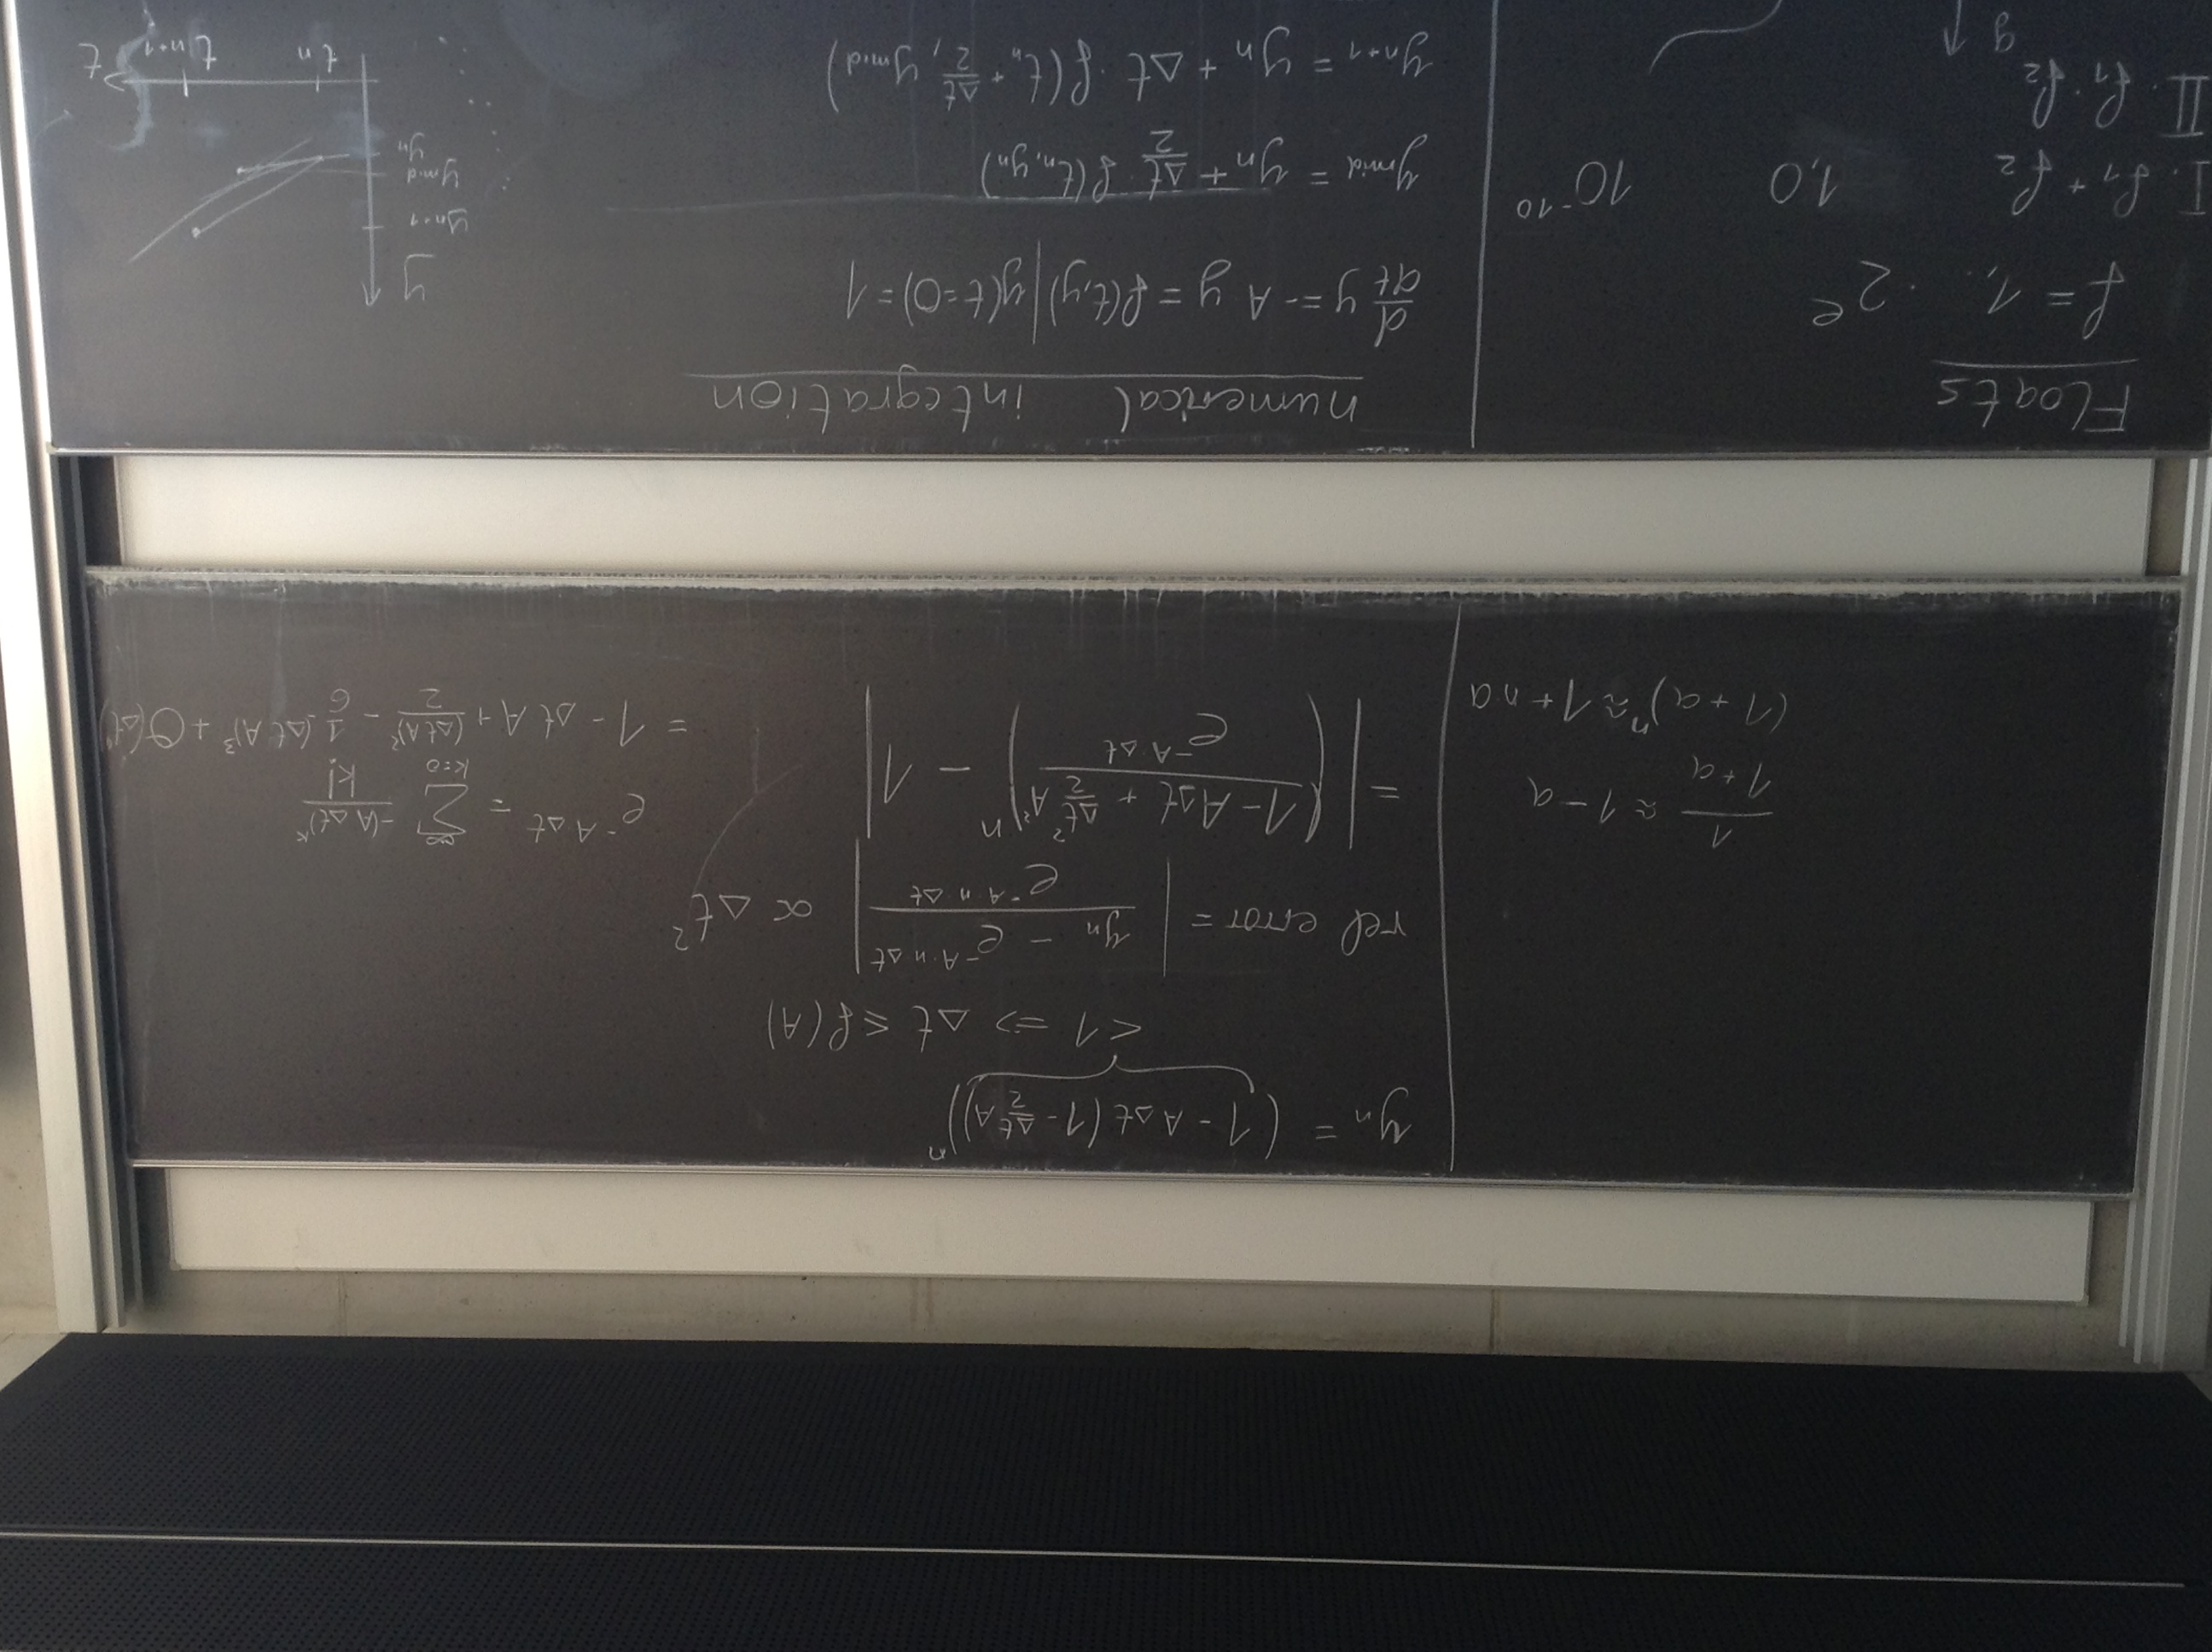 yₙ = (1 - A Δt (1 - Δt/2 A))ⁿ
< 1 => Δt ≤ f(A)
rel error = | (yₙ - e^(-A·n Δt)) / e^(-A·n·Δt) | ∝ Δt²
1/(1+a) ≈ 1 - a
(1+a)ⁿ ≈ 1 + n·a
= | ((1 - AΔt + Δt²/2 A²) / e^(-A·Δt))ⁿ - 1 |
e^(-A·Δt) = ∑_{k=0}^{∞} -(A Δt)^k / k!
= 1 - Δt A + (Δt A)²/2 - 1/6 (Δt A)³ + O(Δt⁴)
Floats
f = 1,.. · 2^e
I. f₁ + f₂ 1,0 10^-10
II. f₁ · f₂
g
numerical integration
d/dt y = -A y = f(t,y) | y(t=0) = 1
y_mid = yₙ + Δt/2 · f(tₙ, yₙ)
yₙ₊₁ = yₙ + Δt · f(tₙ + Δt/2, y_mid)
y
yₙ₊₁
y_mid
yₙ
tₙ tₙ₊₁ t